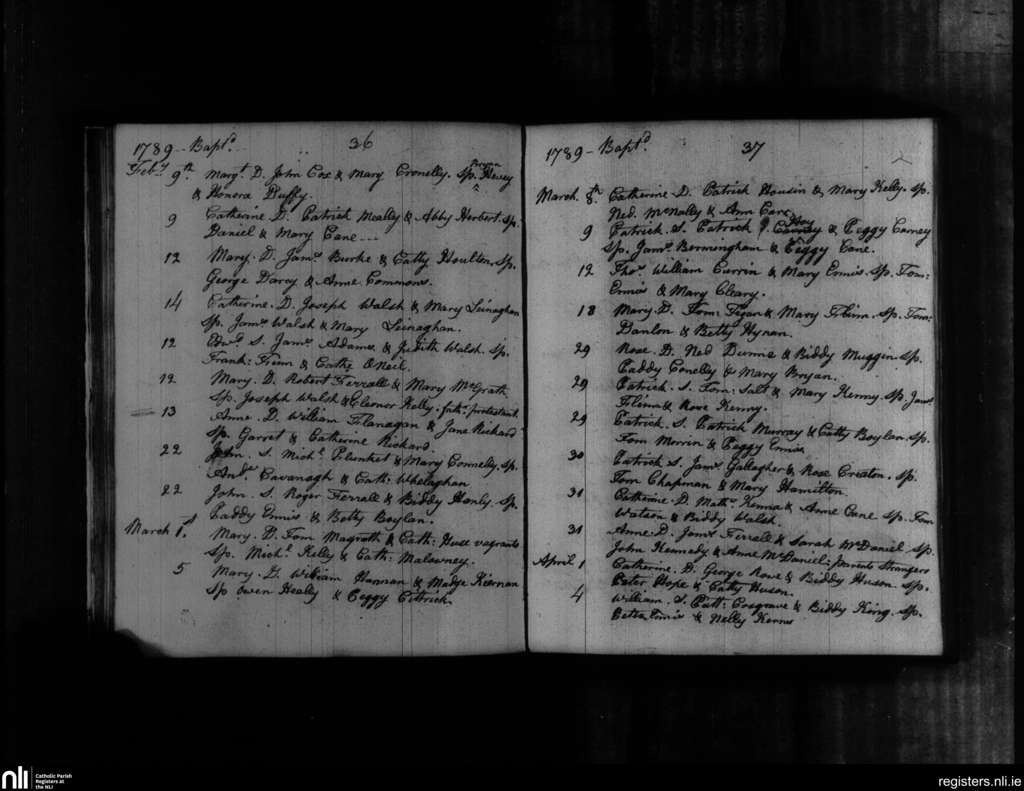 1789 - Baptd. 36
Feby. 9th Margt. D. John Cox & Mary Cronelly. Sp. Hevey
& Honora Duffy.
9 Catherine. D. Patrick Meally & Abby Herbert. Sp.
Daniel & Mary Cane
12 Mary. D. Jams. Burke & Catty Houlton. Sp.
George Darcy & Anne Commons.
14 Catherine. D. Joseph Walsh & Mary Linaghan
Sp. Jams. Walsh & Mary Linaghan.
12 Edwd. S. Jams. Adams & Judith Walsh. Sp.
Frank: Finn & Cathe ONeil.
12 Mary. D. Robert Ferrall & Mary McGrath
Sp. Joseph Walsh & Eleonor Kelly. fath. protestant
13 Anne. D. William Flanagan & Jane Richard
Sp. Garret & Catherine Richard.
22 John. S. Michl. Plunket & Mary Connelly. Sp.
Andw. Cavanagh & Cath: Whelaghan
22 John. S. Roger Ferrall & Biddy Hanly. Sp.
Paddy Ennis & Betty Boylan.
March 1st. Mary. D. Tom Magrath & Cath: Huse vagrants
Sp. Michl. Kelly & Cath: Malowney.
5 Mary. D. William Hannan & Madge Kiernan
Sp Owen Healy & Peggy Cittrick
1789 - Baptd. 37
March. 8th. Catherine. D. Patrick Housin & Mary Kelly. Sp.
Ned. McNally & Ann Cane
Hoy
9 Patrick. S. Patrick Carney & Peggy Carney
Sp. Jams. Bermingham & Peggy Cane.
12 Thos. William Currin & Mary Ennis. Sp. Tom:
Ennis & Mary Cleary.
18 Mary. D. Tom: Fegan & Mary Flinn. Sp. Tom:
Danlon & Betty Hynan.
29 Rose. D. Ned Dunne & Biddy Muggin. Sp.
Paddy Conelly & Mary Bryan.
29 Patrick. S. Tom: Salt & Mary Kenny Sp. Jams.
& Rose Kenny.
29 Patrick. S. Patrick Murray & Catty Boylan. Sp.
Tom Morrin & Peggy Ennis
30 Patrick S. Jams. Gallagher & Rose Creaton. Sp.
Tom Chapman & Mary Hamilton
31 Catherine. D. Mathw. Kenna & Anne Cane Sp. Tom
Watson & Biddy Walsh.
31 Anne. D. Jams. Ferrall & Sarah McDaniel Sp.
John Kennedy & Anne McDaniel: parents Strangers
April 1 Catherine. D. George Rowe & Biddy Huson. Sp.
Peter Hope & Catty Huson.
4 William. S. Patt: Cosgrave & Biddy King. Sp.
Ennis & Nelly Kerns
nli Catholic Parish
Registers at
the NLI
registers.nli.ie